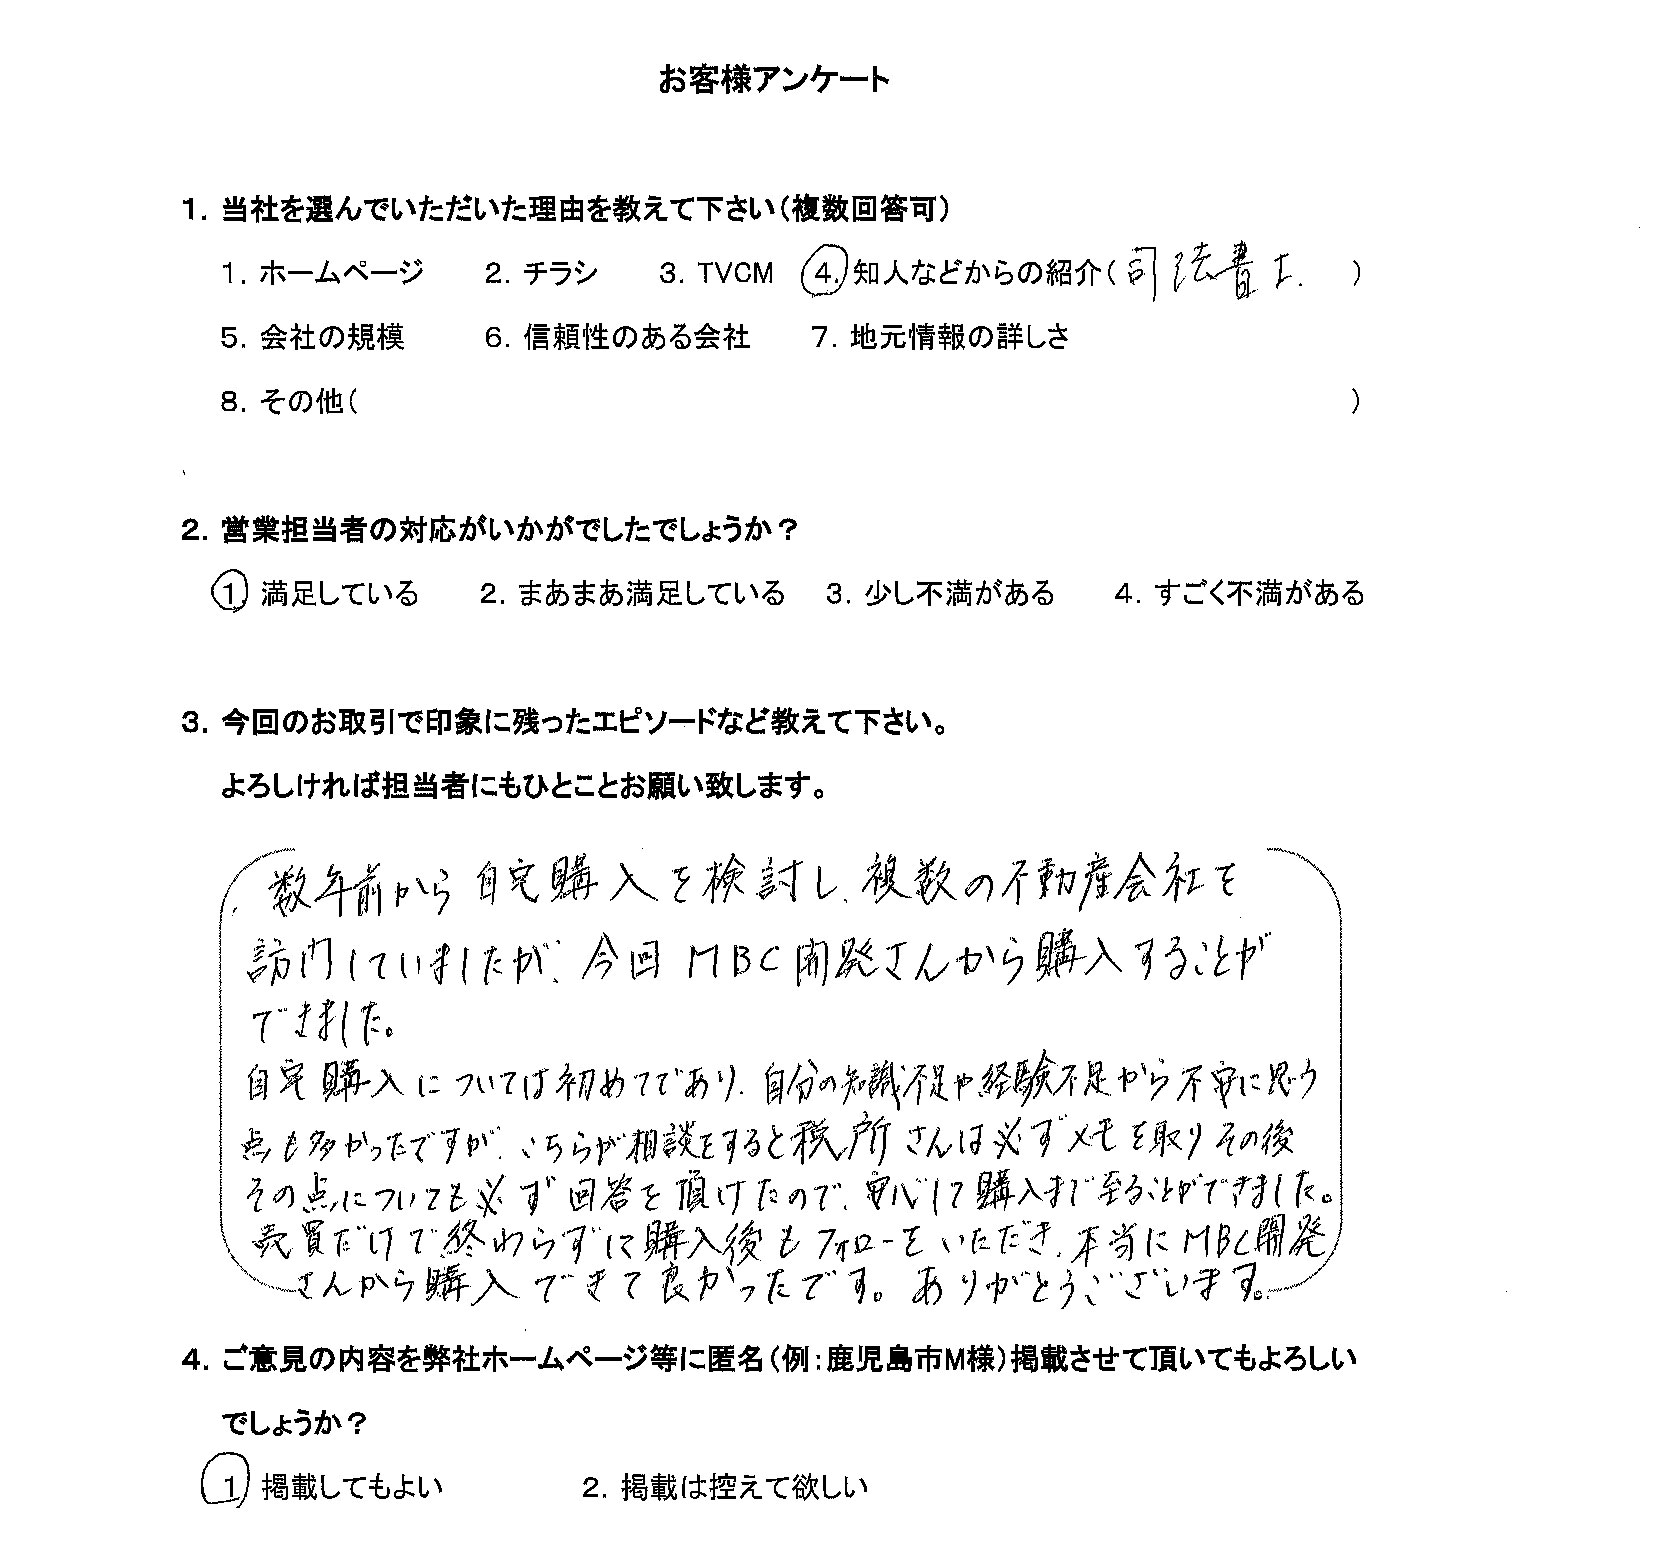 お客様アンケート
1. 当社を選んでいただいた理由を教えて下さい(複数回答可)
1. ホームページ 2. チラシ 3. TVCM 4. 知人などからの紹介(司法書士. )
5. 会社の規模 6. 信頼性のある会社 7. 地元情報の詳しさ
8. その他( )
2. 営業担当者の対応がいかがでしたでしょうか?
1 満足している 2. まあまあ満足している 3. 少し不満がある 4. すごく不満がある
3. 今回のお取引で印象に残ったエピソードなど教えて下さい。
よろしければ担当者にもひとことお願い致します。
数年前から自宅購入を検討し、複数の不動産会社を
訪問していましたが、今回MBC開発さんから購入することが
できました。
自宅購入については初めてであり、自分の知識不足や経験不足から不安に思う
点も多かったですが、こちらが相談をすると税所さんは必ずメモを取りその後
その点についても必ず回答を頂けたので、安心して購入まで至ることができました。
売買だけで終わらずに購入後もフォローをいただき、本当にMBC開発
さんから購入できて良かったです。ありがとうございます。
4. ご意見の内容を弊社ホームページ等に匿名(例:鹿児島市M様)掲載させて頂いてもよろしい
でしょうか?
1 掲載してもよい 2. 掲載は控えて欲しい